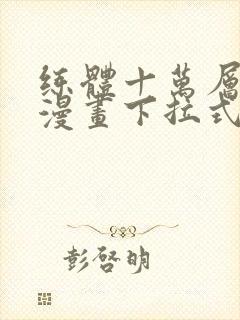 练體十萬層
漫畫下拉式
彭啓明